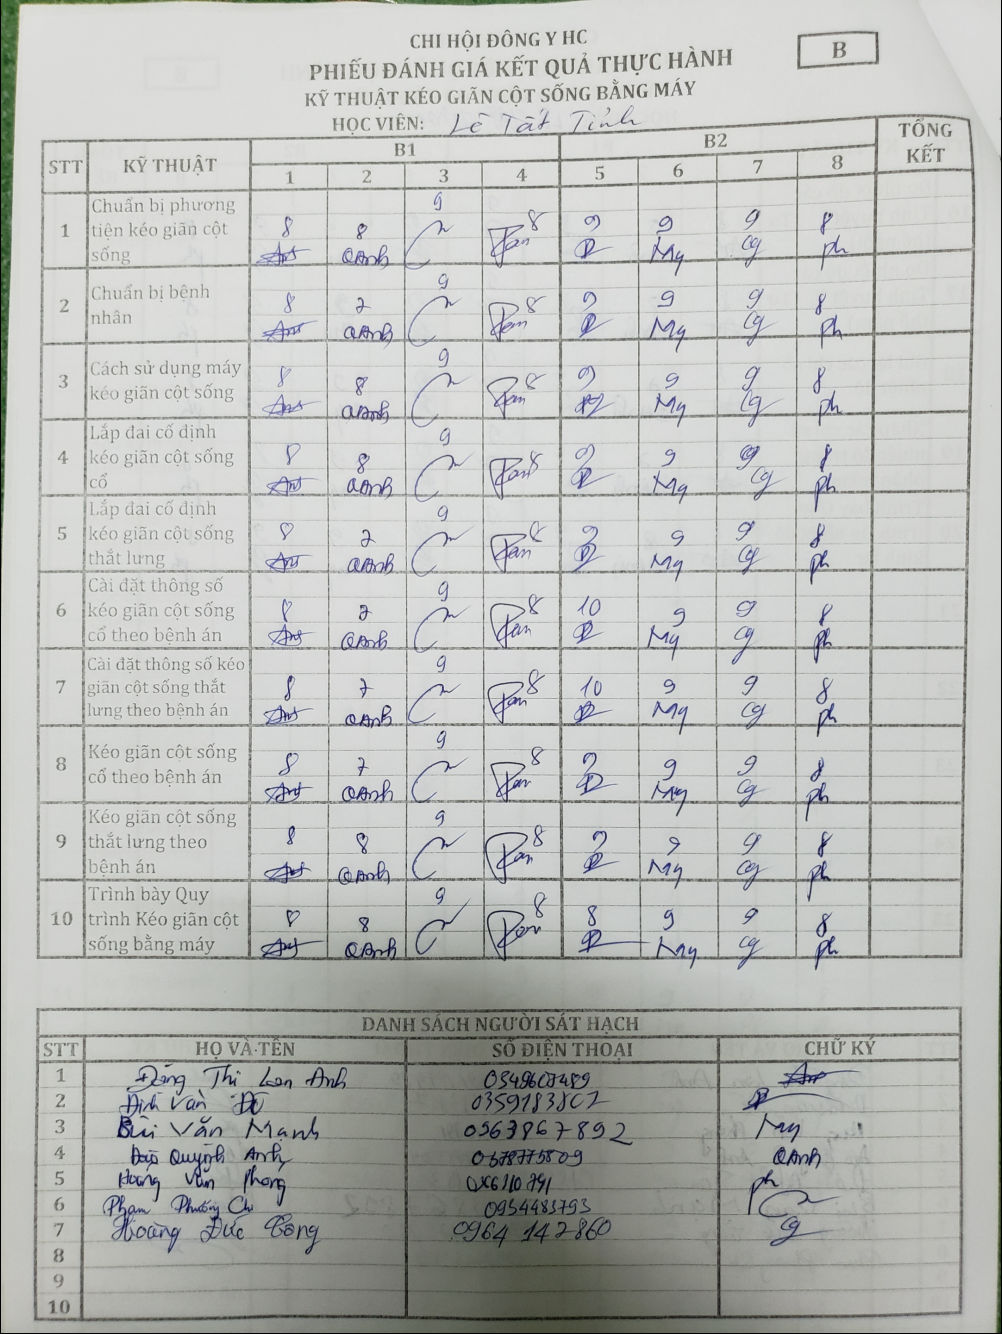 CHI HỘI ĐÔNG Y HC
B
PHIẾU ĐÁNH GIÁ KẾT QUẢ THỰC HÀNH
KỸ THUẬT KÉO GIÃN CỘT SỐNG BẰNG MÁY
HỌC VIÊN: Lê Tất Tỉnh
STT KỸ THUẬT B1 B2 TỔNG KẾT
1 2 3 4 5 6 7 8
1 Chuẩn bị phương tiện kéo giãn cột sống
8 8 9 8 9 9 9 8
QAnh My cg ph
2 Chuẩn bị bệnh nhân
8 7 9 8 9 9 9 8
QAnh My cg ph
3 Cách sử dụng máy kéo giãn cột sống
8 8 9 8 9 9 9 8
QAnh My cg ph
4 Lắp đai cố định kéo giãn cột sống cổ
8 8 9 8 9 9 9 8
QAnh My cg ph
5 Lắp đai cố định kéo giãn cột sống thắt lưng
8 7 9 8 9 9 9 8
QAnh My cg ph
6 Cài đặt thông số kéo giãn cột sống cổ theo bệnh án
8 7 9 8 10 9 9 8
QAnh My cg ph
7 Cài đặt thông số kéo giãn cột sống thắt lưng theo bệnh án
8 7 9 8 10 9 9 8
QAnh My cg ph
8 Kéo giãn cột sống cổ theo bệnh án
8 7 9 8 9 9 9 8
QAnh My cg ph
9 Kéo giãn cột sống thắt lưng theo bệnh án
8 8 9 8 9 9 9 8
QAnh My cg ph
10 Trình bày Quy trình Kéo giãn cột sống bằng máy
8 8 9 8 8 9 9 8
QAnh My cg ph
DANH SÁCH NGƯỜI SÁT HẠCH
STT HỌ VÀ TÊN SỐ ĐIỆN THOẠI CHỮ KÝ
1 Đặng Thị Lan Anh
2 Đinh Văn
3 Bùi Văn Mạnh 0963867892 My
4 Quỳnh Anh QAnh
5 Hoàng Văn Phong ph
6 Phạm Phương Chi
7 Hoàng Đức Công 0964 142860 cg
8
9
10